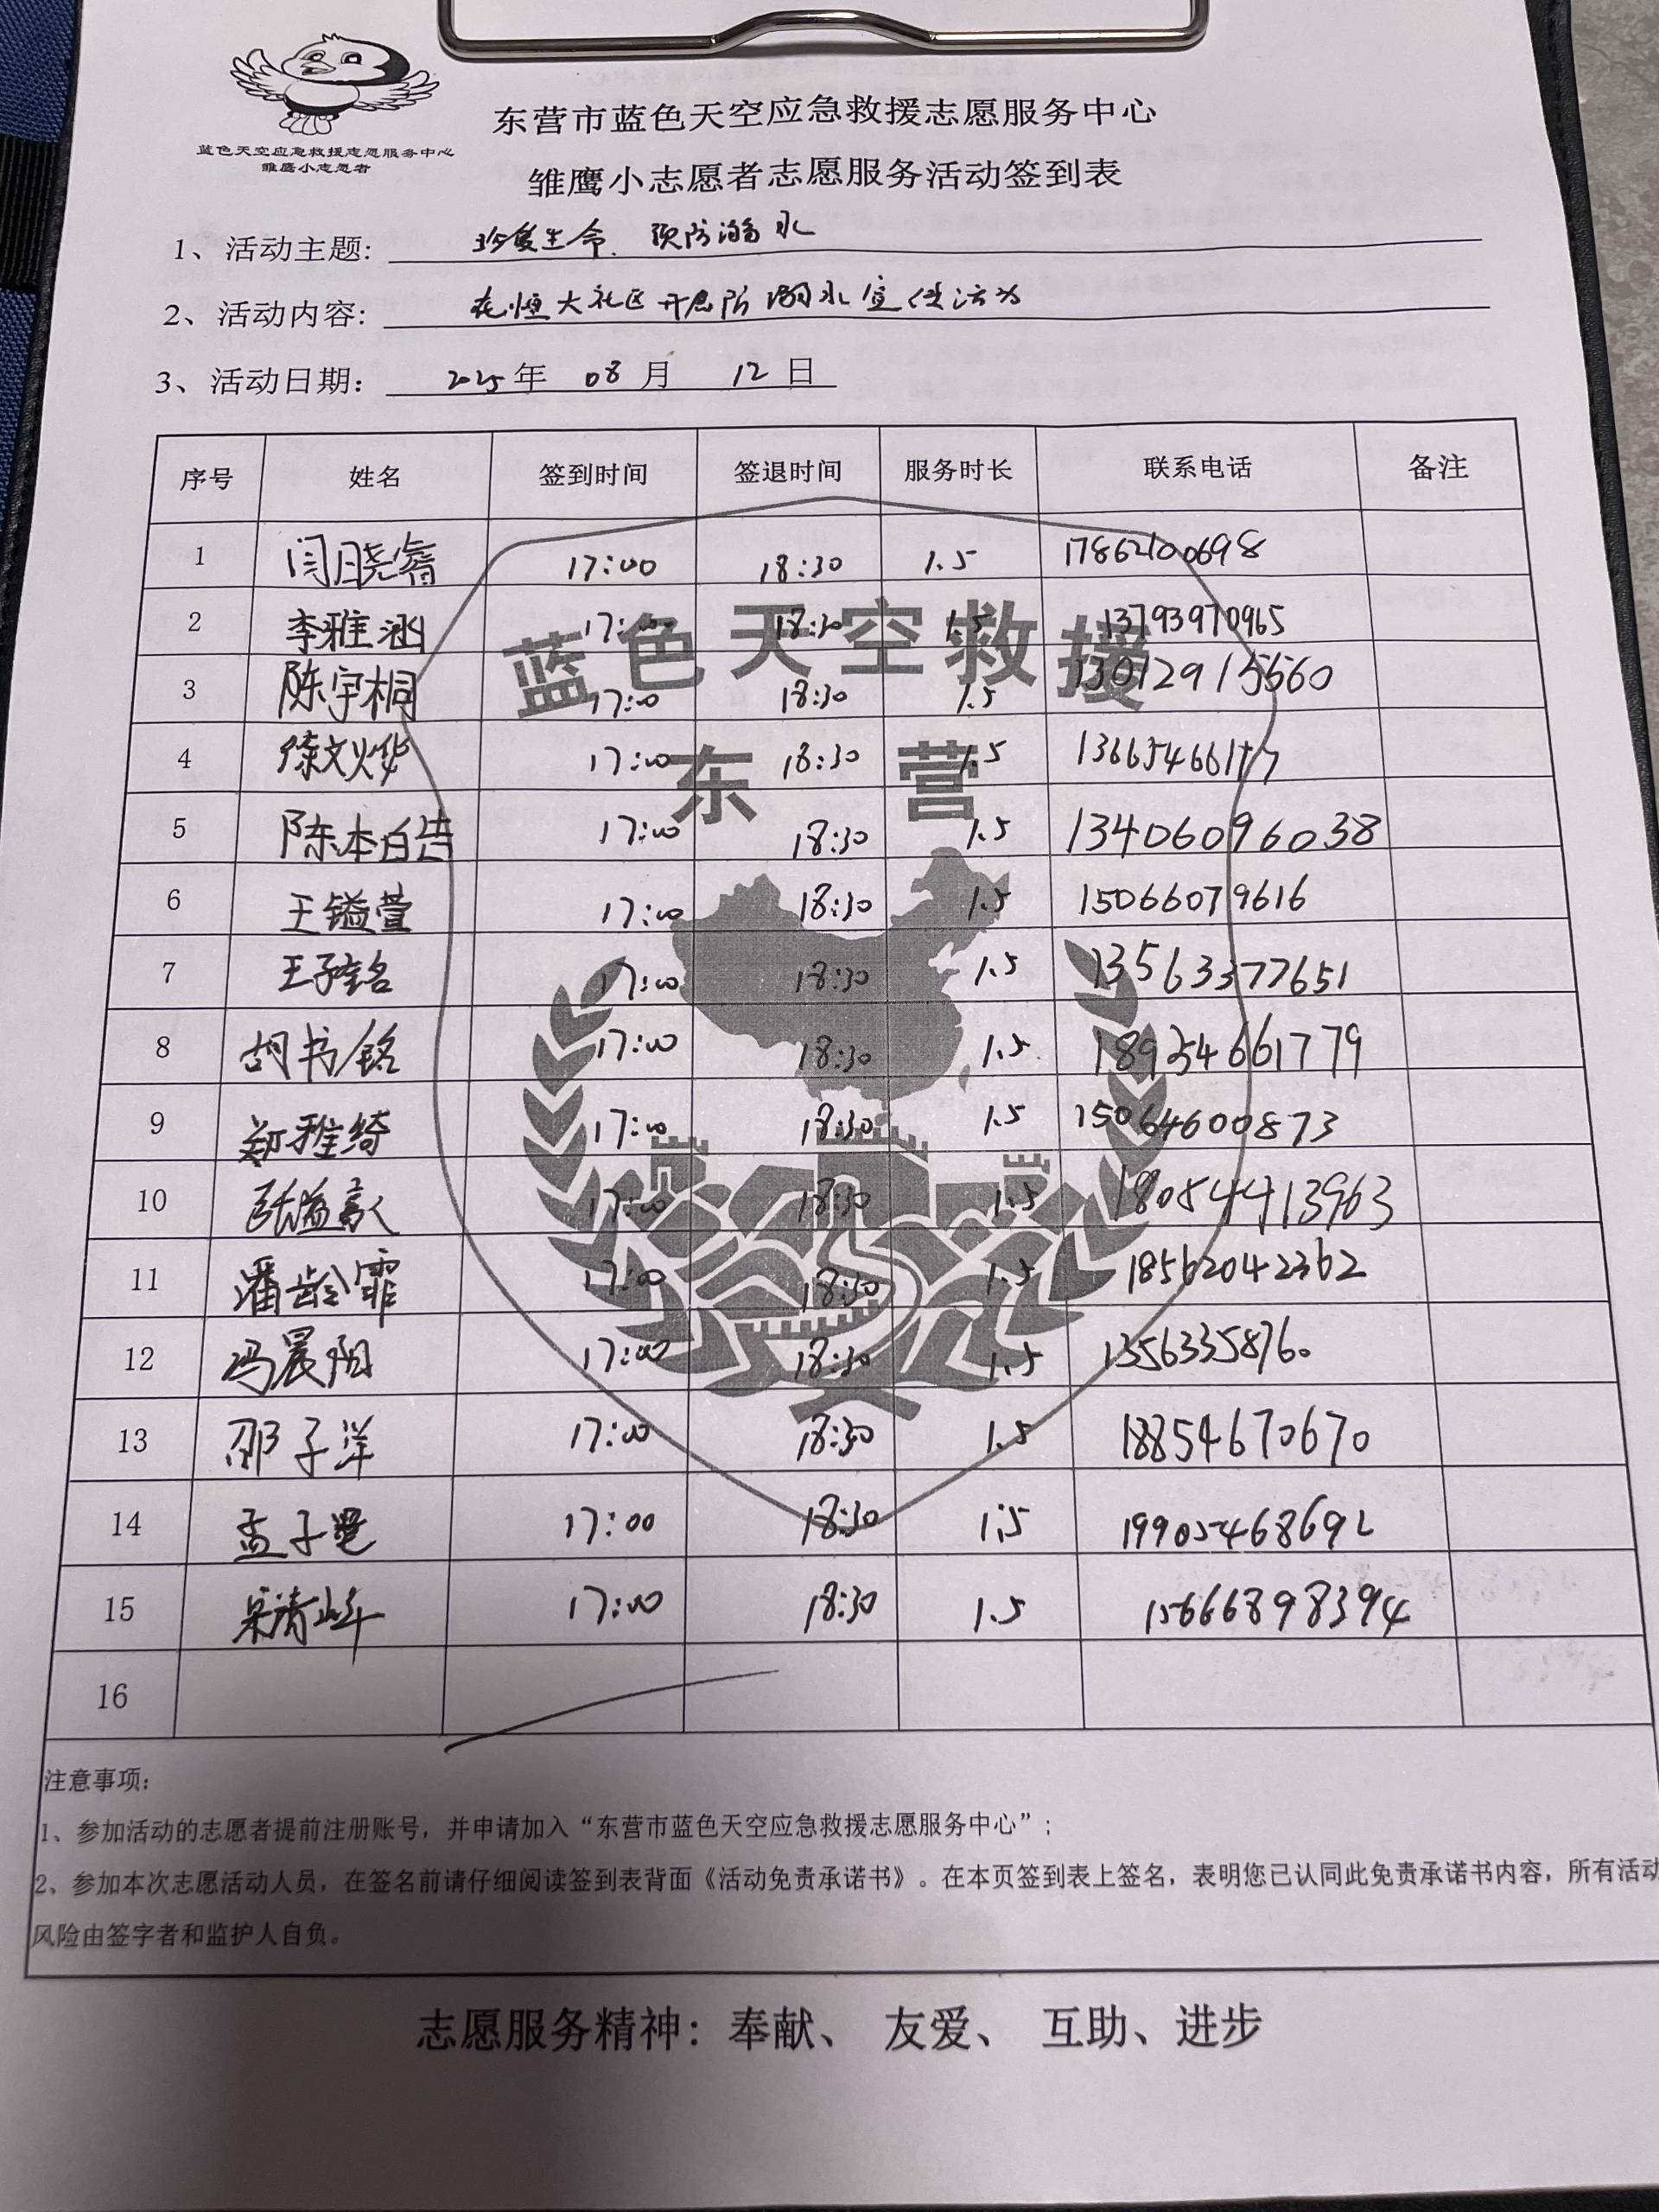 蓝色天空应急救援志愿服务中心
雏鹰小志愿者
东营市蓝色天空应急救援志愿服务中心
雏鹰小志愿者志愿服务活动签到表
1、活动主题: 珍爱生命、预防溺水
2、活动内容: 在恒大社区开展防溺水宣传活动
3、活动日期: 2025年 08月 12日
序号 姓名 签到时间 签退时间 服务时长 联系电话 备注
1 闫晓睿 17:00 18:30 1.5 17862100698
2 李雅涵 17:00 18:30 1.5 13793970965
3 陈宇桐 17:00 18:30 1.5 13012915560
4 17:00 18:30 1.5
5 陈本皓 17:00 18:30 1.5 13406096038
6 王镒萱 17:00 18:30 1.5 15066079616
7 王子铭 17:00 18:30 1.5 13563377651
8 胡书铭 17:00 18:30 1.5 189254661779
9 郑雅绮 17:00 18:30 1.5 15064600873
10 17:00 18:30 1.5 18054413963
11 潘龄霏 17:00 18:30 1.5 18562042362
12 冯晨阳 17:00 18:30 1.5 13563358760
13 邵子洋 17:00 18:30 1.5 18854670670
14 孟子 17:00 18:30 1.5 19905468692
15 宋清峰 17:00 18:30 1.5 15666898394
16
蓝色天空救援
东营
注意事项:
1、参加活动的志愿者提前注册账号，并申请加入“东营市蓝色天空应急救援志愿服务中心”;
2、参加本次志愿活动人员，在签名前请仔细阅读签到表背面《活动免责承诺书》。在本页签到表上签名，表明您已认同此免责承诺书内容，所有活动
风险由签字者和监护人自负。
志愿服务精神: 奉献、 友爱、 互助、进步